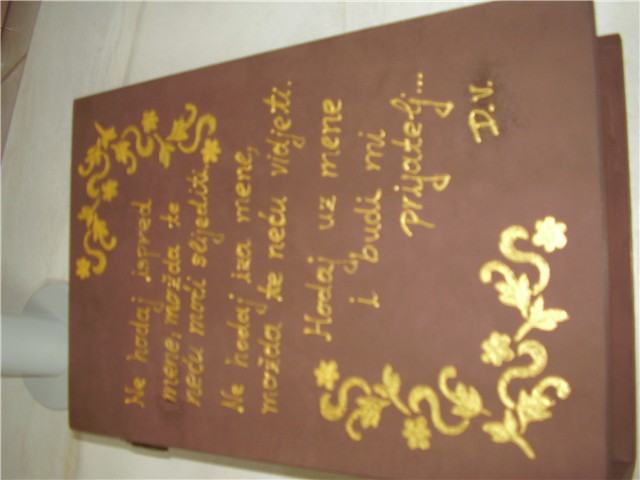 Ne hodaj ispred
mene, možda te
neću moći slijediti.
Ne hodaj iza mene,
možda te neću vidjeti.
Hodaj uz mene
i budi mi
prijatelj...
D.V.